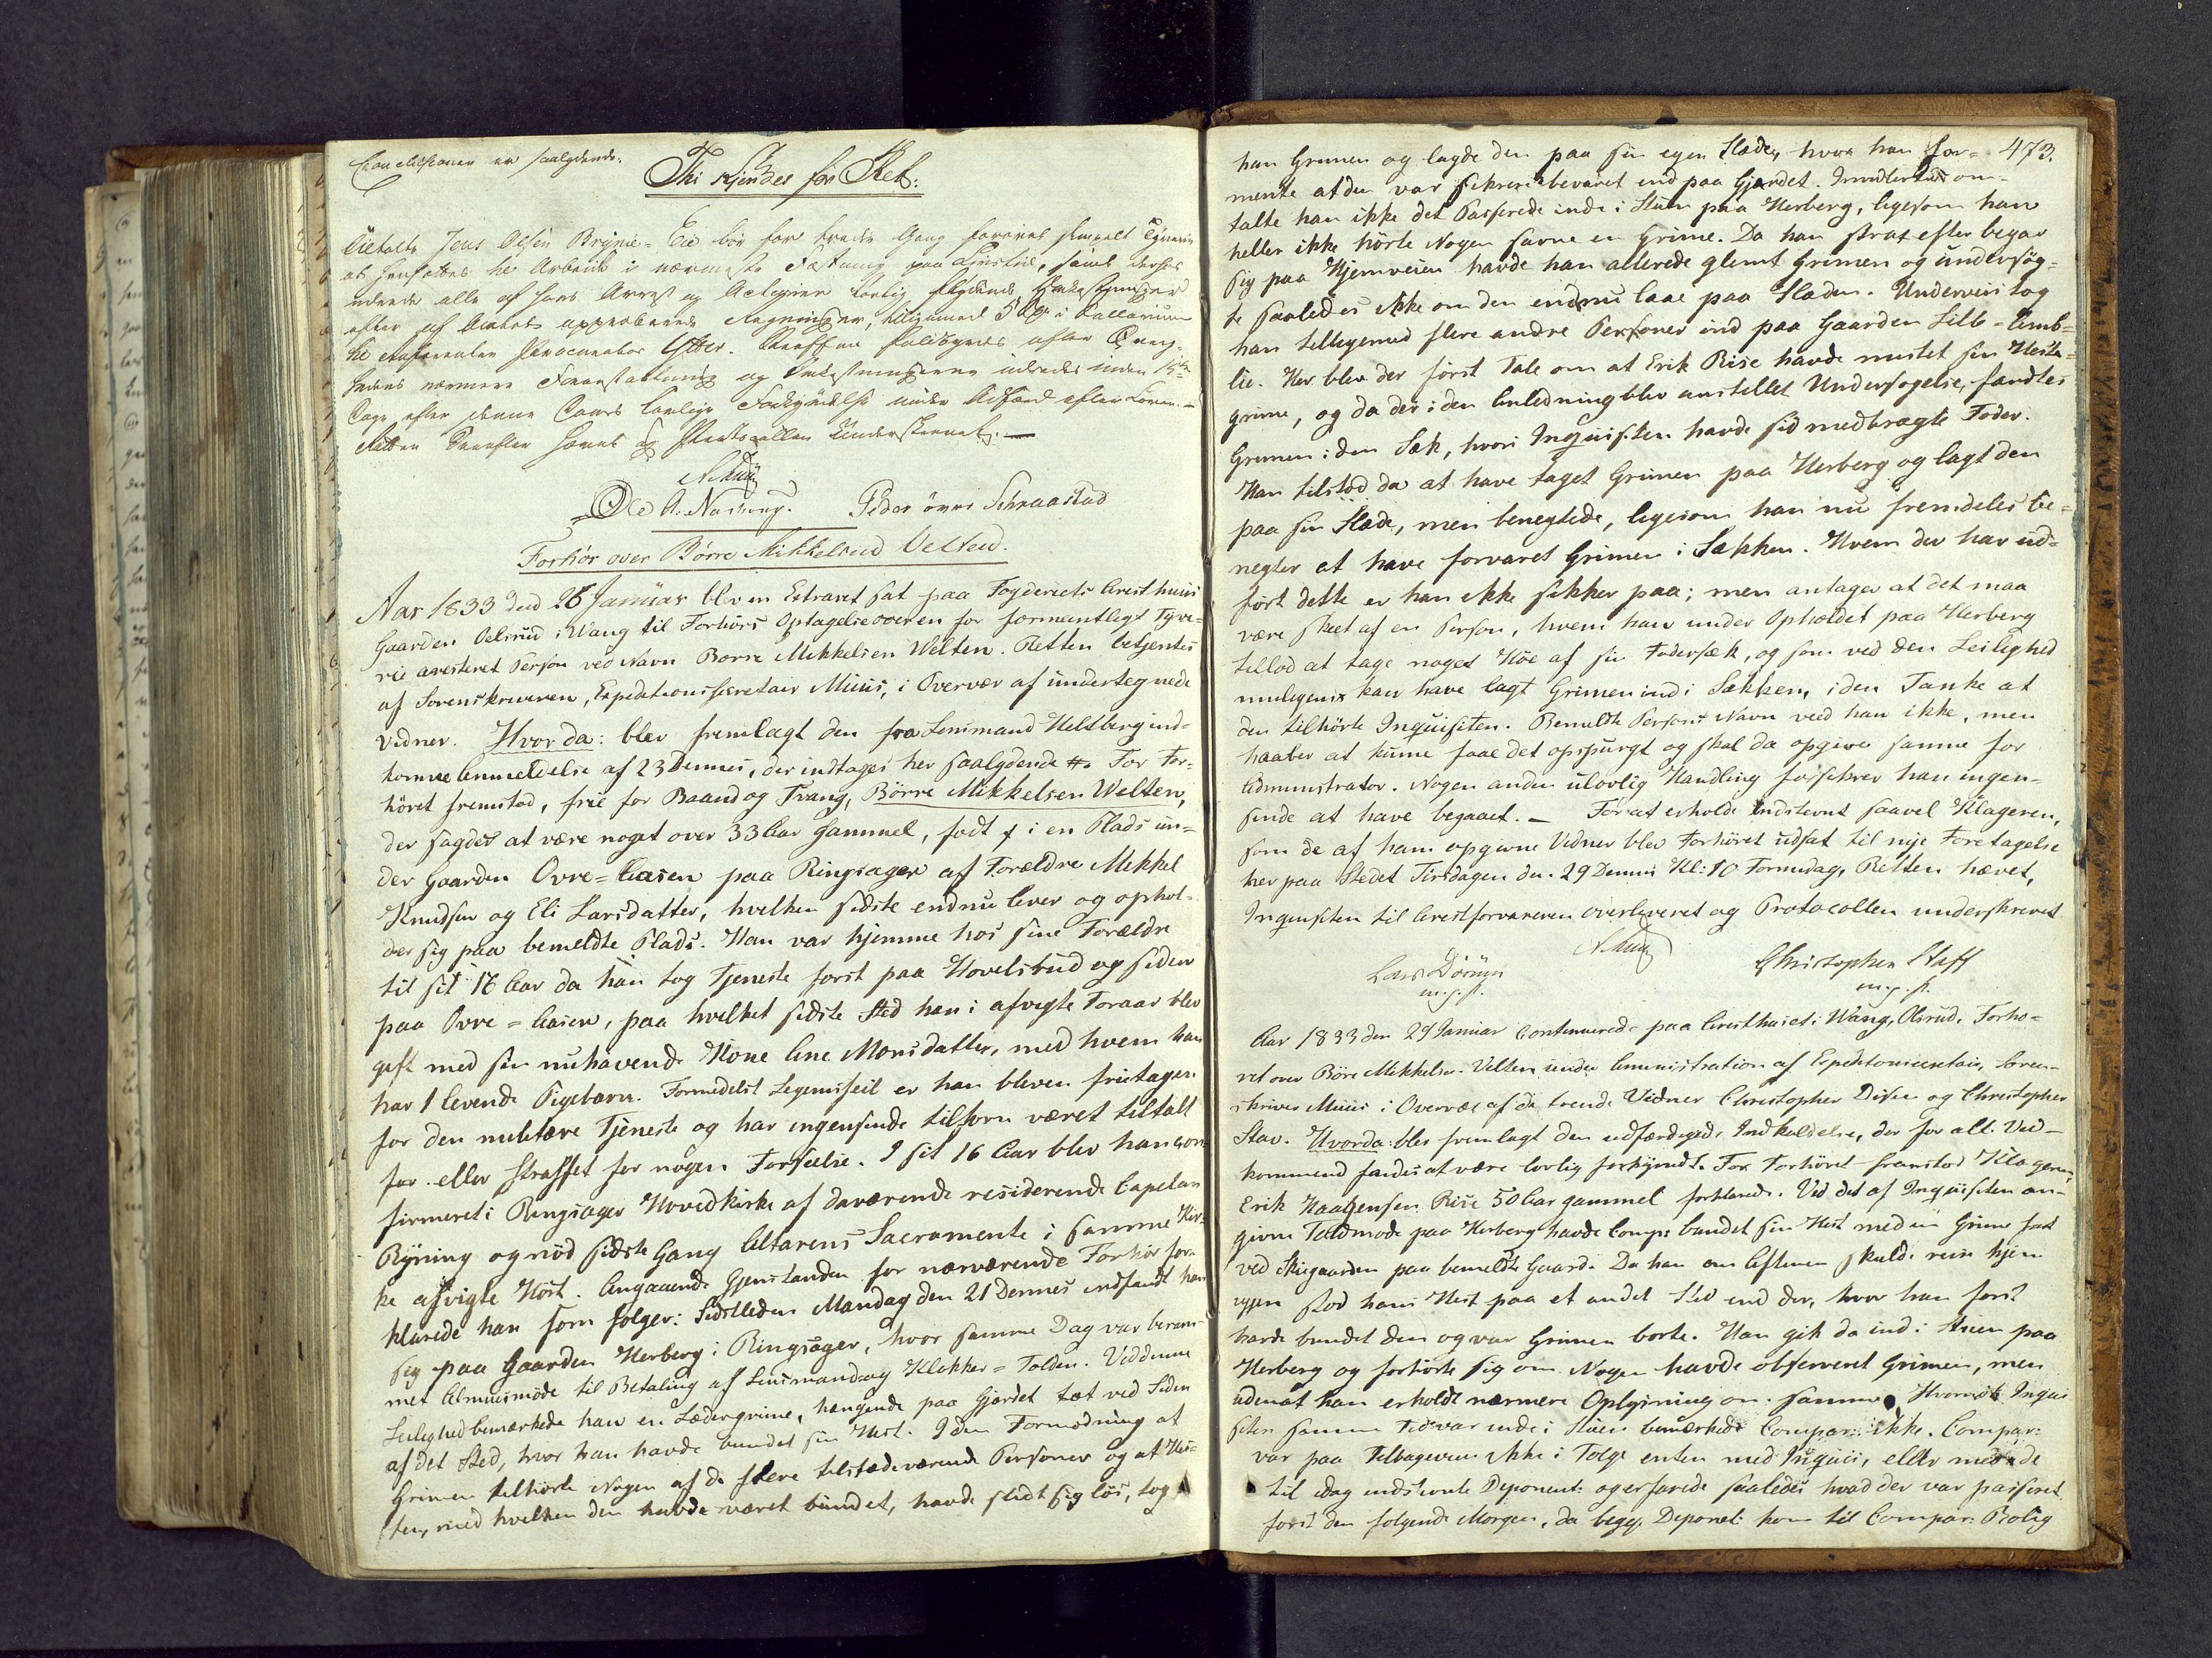 Conclusionen er saalydende.
Thi kjendes for Ret:
Tiltalte Jens Olsen Brynie-Eie bør for tredie Gang forøvet simpelt Tyverie
at hensættes til Arbeide i nærmeste Fæstning paa Livstid, samt derhos
udrede alle af hans Arrest og Actionen lovlig flydende Omkostninger
efter af Amtet approberede Regninger, tilligemed 5 Spd i Sallarium
til Procurator
hedens nærmere Foranstaltning og Omkostningerne udredes inden 15
Dage efter denne Doms lovlige Forkyndelse under Adfærd efter Loven. –
Retten derefter hævet og Protocollen underskrevet. –
NMuus
Ole A. Nashoug. Peder övre Schraastad
Forhör over Börre Mikkelsen Velten.
Aar 1833 den 26 Januar blev en Extraret sat paa Fogderiets Aresthuus
Gaarden Oelsrud i Wang til Forhörs Optagelse over en for formeentligt Tyve-
rie aresteret Person ved Navn Börre Mikkelsen Welten. Retten betjentes
af Sorenskriveren, Expeditionssecretair Muus, i Overvær af undertegnede
Vidner. Hvorda: blev fremlagt den fra Lensmand Heltberg ind-
komne Anmeldelse af 23 Dennes, der indtages her saalydende #. For For-
höret fremstod, frie for Baand og Tvang, Börre Mikkelsen Welten,
der sagdes at være noget over 33 Aar gammel, födt i en Plads un-
der Gaarden Övre-Aasen paa Ringsager af Forældre Mikkel
Knudsen og Eli Larsdatter, hvilken sidste endnu lever og ophol-
der sig paa bemeldte Plads. Han var hjemme hos sine Forældre
til sit 16 Aar da han tog Tjeneste först paa Hovelsrud og siden
paa Övre-Aasen, paa hvilket sidste Sted han i afvigte Foraar blev
gift med sin nuhavende Kone Ane Monsdatter, med hvem han
har 1 levende Pigebarn. Formedelst Legemsfeil er han bleven fritagen
for den militære Tjeneste og har ingensinde tilforn været tiltalt
for eller straffet for nogen Forseelse. I sit 16 Aar blev han con-
firmeret i Ringsager Hovedkirke af daværende residerende Capelan
Rÿning og nöd sidste Gang Altarens Sacramente i samme Kir-
ke afvigte Höst. Angaaende Gjenstanden for nærværende Forhör for-
klarede han som fölger: Sidstleden Mandag den 21 Dennes indfandt han
sig paa Gaarden Herberg i Ringsager, hvor samme Dag var beram-
met Almuesmöde til Betaling af Lensmands og Klokker-Tolden. Ved denne
Leilighed bemærkede han en Lædergrime, hængende paa Gjerdet tæt ved Siden
af det Sted, hvor han havde bundet sin Hest. I den Formodning at
Grimen tilhörte Nogen af de flere tilstædeværende Personer og at Hes-
ten, med hvilken den havde været bundet, havde slidt sig lös, tog
473.
han Grimen og lagde den paa sin egen Slæde, hvor han for-
mente at den var sikrere bevaret end paa Gjerdet. Imidlertid om-
talte han ikke det Passerede inde i Stuen paa Herberg, ligesom han
heller ikke hörte Nogen savne en Grime. Da han strax efter begav
sig paa Hjemveien havde han allerede glemt Grimen og undersög-
te saaledes ikke om den endnu laae paa Slæden. Underveis tog
han tilligemed flere andre Personer ind paa Gaarden Lille-Emb-
lie. Her blev der först Tale om at Erik Rise havde mistet sin Heste-
grime, og da der i den Anledning blev anstillet Undersögelse, fandtes
Grimen i den Sæk, hvori Inqvisiten havde sid medbragte Foder.
Han tilstod da at have taget Grimen paa Herberg og lagt den
paa sin Slæde, men benegtede, ligesom han nu fremdeles be-
negter at have forvaret Grimen i Sækken. Hvem der har ud-
fört dette er han ikke sikker paa; men antager at det maa
være skeet af en Person, hvem han under Opholdet paa Herberg
tillod at tage noget Höe af sin Fodersæk, og som ved den Leilighed
muligens kan have lagt Grimen ind i Sækken, i den Tanke at
den tilhörte Inqvisiten. Bemeldte Persons Navn veed han ikke, men
haaber at kunne faae det opspurgt og skal da opgive samme for
Administrator. Nogen anden ulovlig Handling forsikrer han ingen-
sinde at have begaaet. – For at erholde indstevnt saavel Klageren,
som de af ham opgivne Vidner blev Forhöret udsat til nye Foretagelse
her paa Stedet Tirsdagen den 29 Dennes Kl: 10 Formidag, Retten hævet,
Inqvisiten til Arestforvareren overleveret og Protocollen underskrevet
NMuus
Lars Döruyn Christopher Staff
m.p.p. m.p.p.
Aar 1833 den 29 Januar continuerede paa Aresthuset i Wang, Olsrud, Forhö-
ret over Böre Mikkelsen Velten under Aministration af Expeditionssecretair, Soren-
skriver Muus i Overvær af de trende Vidner Christopher Disen og Christopher
Stav. Hvorda: blev fremlagt den udfærdigede Indkaldelse, der for alle Ved-
kommend fandtes at være lovlig forkyndt. For Forhöret fremstod Klageren,
Erik Haagensen Rise 50 Aar gammel forklarede. Ved det af Inqvisiten an-
givne Toldmöde paa Herberg havde Comp: bundet sin Hest med en Grime fast
ved Skigaarden paa bemeldte Gaard. Da han om Aftenen skulde reise hjem
igjen stod hans Hest paa et andet Sted end der, hvor han först
havde bundet den og var Grimen borte. Han gik da ind i Stuen paa
Herberg og forhörte sig om Nogen havde observeret Grimen, men
udenat han erholdt nærmere Oplysning om samme. Hvorvidt Inqvi
siten samme Tid var inde i Stuen bemærkede Compar: ikke. Compar:
var paa Tilbageveien ikke i Fölge enten med Inqvis, eller med de
til idag indstevnte Deponent: og erfarede saaledes hvad der var passeret
först den fölgende Morgen, da begge Deponet: kom til Compar: Bolig